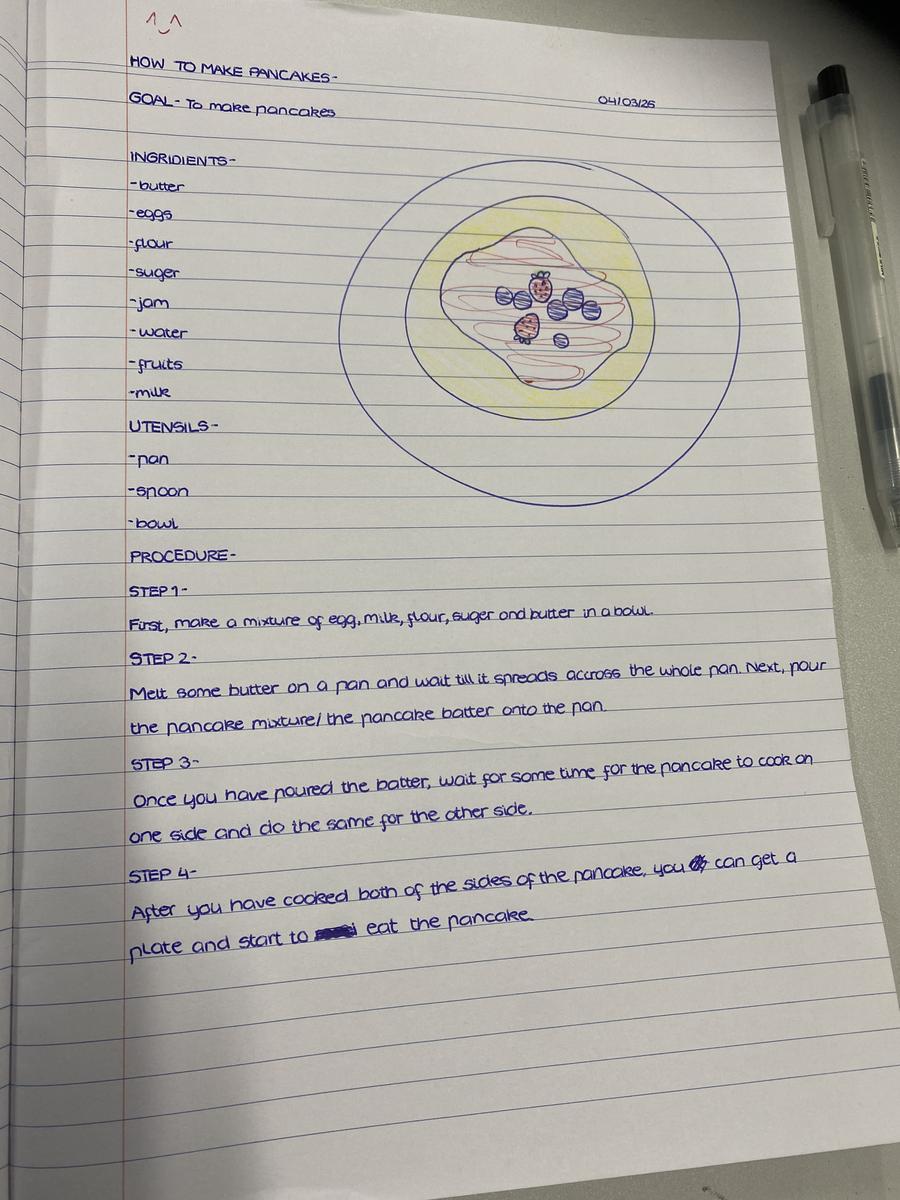 HOW TO MAKE PANCAKES-
04/03/26
GOAL- To make pancakes
INGRIDIENTS-
-butter
-eggs
-flour
-suger
-jam
-water
-fruits
-milk
UTENSILS-
-pan
-spoon
-bowl
PROCEDURE-
STEP 1-
First, make a mixture of egg, milk, flour, suger and butter in a bowl.
STEP 2-
Melt some butter on a pan and wait till it spreads accross the whole pan. Next, pour
the pancake mixture/ the pancake batter onto the pan.
STEP 3-
Once you have poured the batter, wait for some time for the pancake to cook on
one side and do the same for the other side.
STEP 4-
After you have cooked both of the sides of the pancake, you can get a
plate and start to eat the pancake.